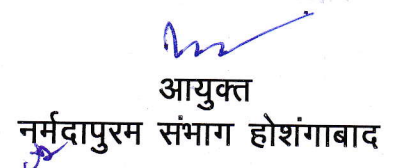 आयुक्त
नर्मदापुरम संभाग होशंगाबाद